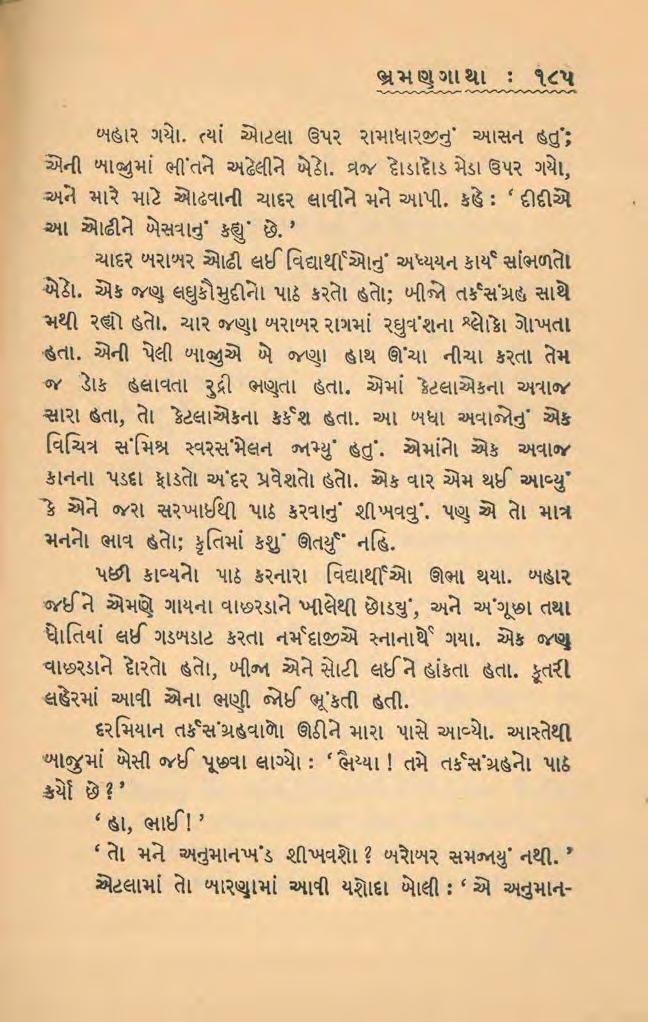 ભ્રમણગાથા : ૧૮૫
બહાર ગયો. ત્યાં ઓટલા ઉપર રામાધારજીનું આસન હતું;
એની બાજુમાં ભીંતને અઢેલીને બેઠો. વ્રજ દોડાદોડ મેડા ઉપર ગયો,
અને મારે માટે ઓઢવાની ચાદર લાવીને મને આપી. કહે : ‘ દીદીએ
આ ઓઢીને બેસવાનું કહ્યું છે. ’
ચાદર બરાબર ઓઢી લઈ વિદ્યાર્થીઓનું અધ્યયન કાર્ય સાંભળતો
બેઠો. એક જણ લઘુકૌમુદીનો પાઠ કરતો હતો; બીજો તર્કસંગ્રહ સાથે
મથી રહ્યો હતો. ચાર જણા બરાબર રાગમાં રઘુવંશના શ્લોકો ગોખતા
હતા. એની પેલી બાજુએ બે જણા હાથ ઊંચા નીચા કરતા તેમ
જ ડોક હલાવતા રુદ્રી ભણતા હતા. એમાં કેટલાએકના અવાજ
સારા હતા, તો કેટલાએકના કર્કશ હતા. આ બધા અવાજોનું એક
વિચિત્ર સંમિશ્ર સ્વરસંમેલન જામ્યું હતું. એમાંનો એક અવાજ
કાનના પડદા ફાડતો અંદર પ્રવેશતો હતો. એક વાર એમ થઈ આવ્યું
કે એને જરા સરખાઈથી પાઠ કરવાનું શીખવવું. પણ એ તો માત્ર
મનનો ભાવ હતો; કૃતિમાં કશું ઊતર્યું નહિ.
પછી કાવ્યનો પાઠ કરનારા વિદ્યાર્થીઓ ઊભા થયા. બહાર
જઈને એમણે ગાયના વાછરડાને ખીલેથી છોડ્યું, અને અંગૂછા તથા
ધોતિયાં લઈ ગડબડાટ કરતા નર્મદાજીએ સ્નાનાર્થે ગયા. એક જણ
વાછરડાને દોરતો હતો, બીજા એને સોટી લઈને હાંકતા હતા. કૂતરી
લહેરમાં આવી એના ભણી જોઈ ભૂંકતી હતી.
દરમિયાન તર્કસંગ્રહવાળો ઊઠીને મારા પાસે આવ્યો. આસ્તેથી
બાજુમાં બેસી જઈ પૂછવા લાગ્યો : ‘ ભૈય્યા ! તમે તર્કસંગ્રહનો પાઠ
કર્યો છે ? ’
‘ હા, ભાઈ ! ’
‘ તો મને અનુમાનખંડ શીખવશો ? બરોબર સમજાયું નથી. ’
એટલામાં તો બારણામાં આવી યશોદા બોલી : ‘ એ અનુમાન-